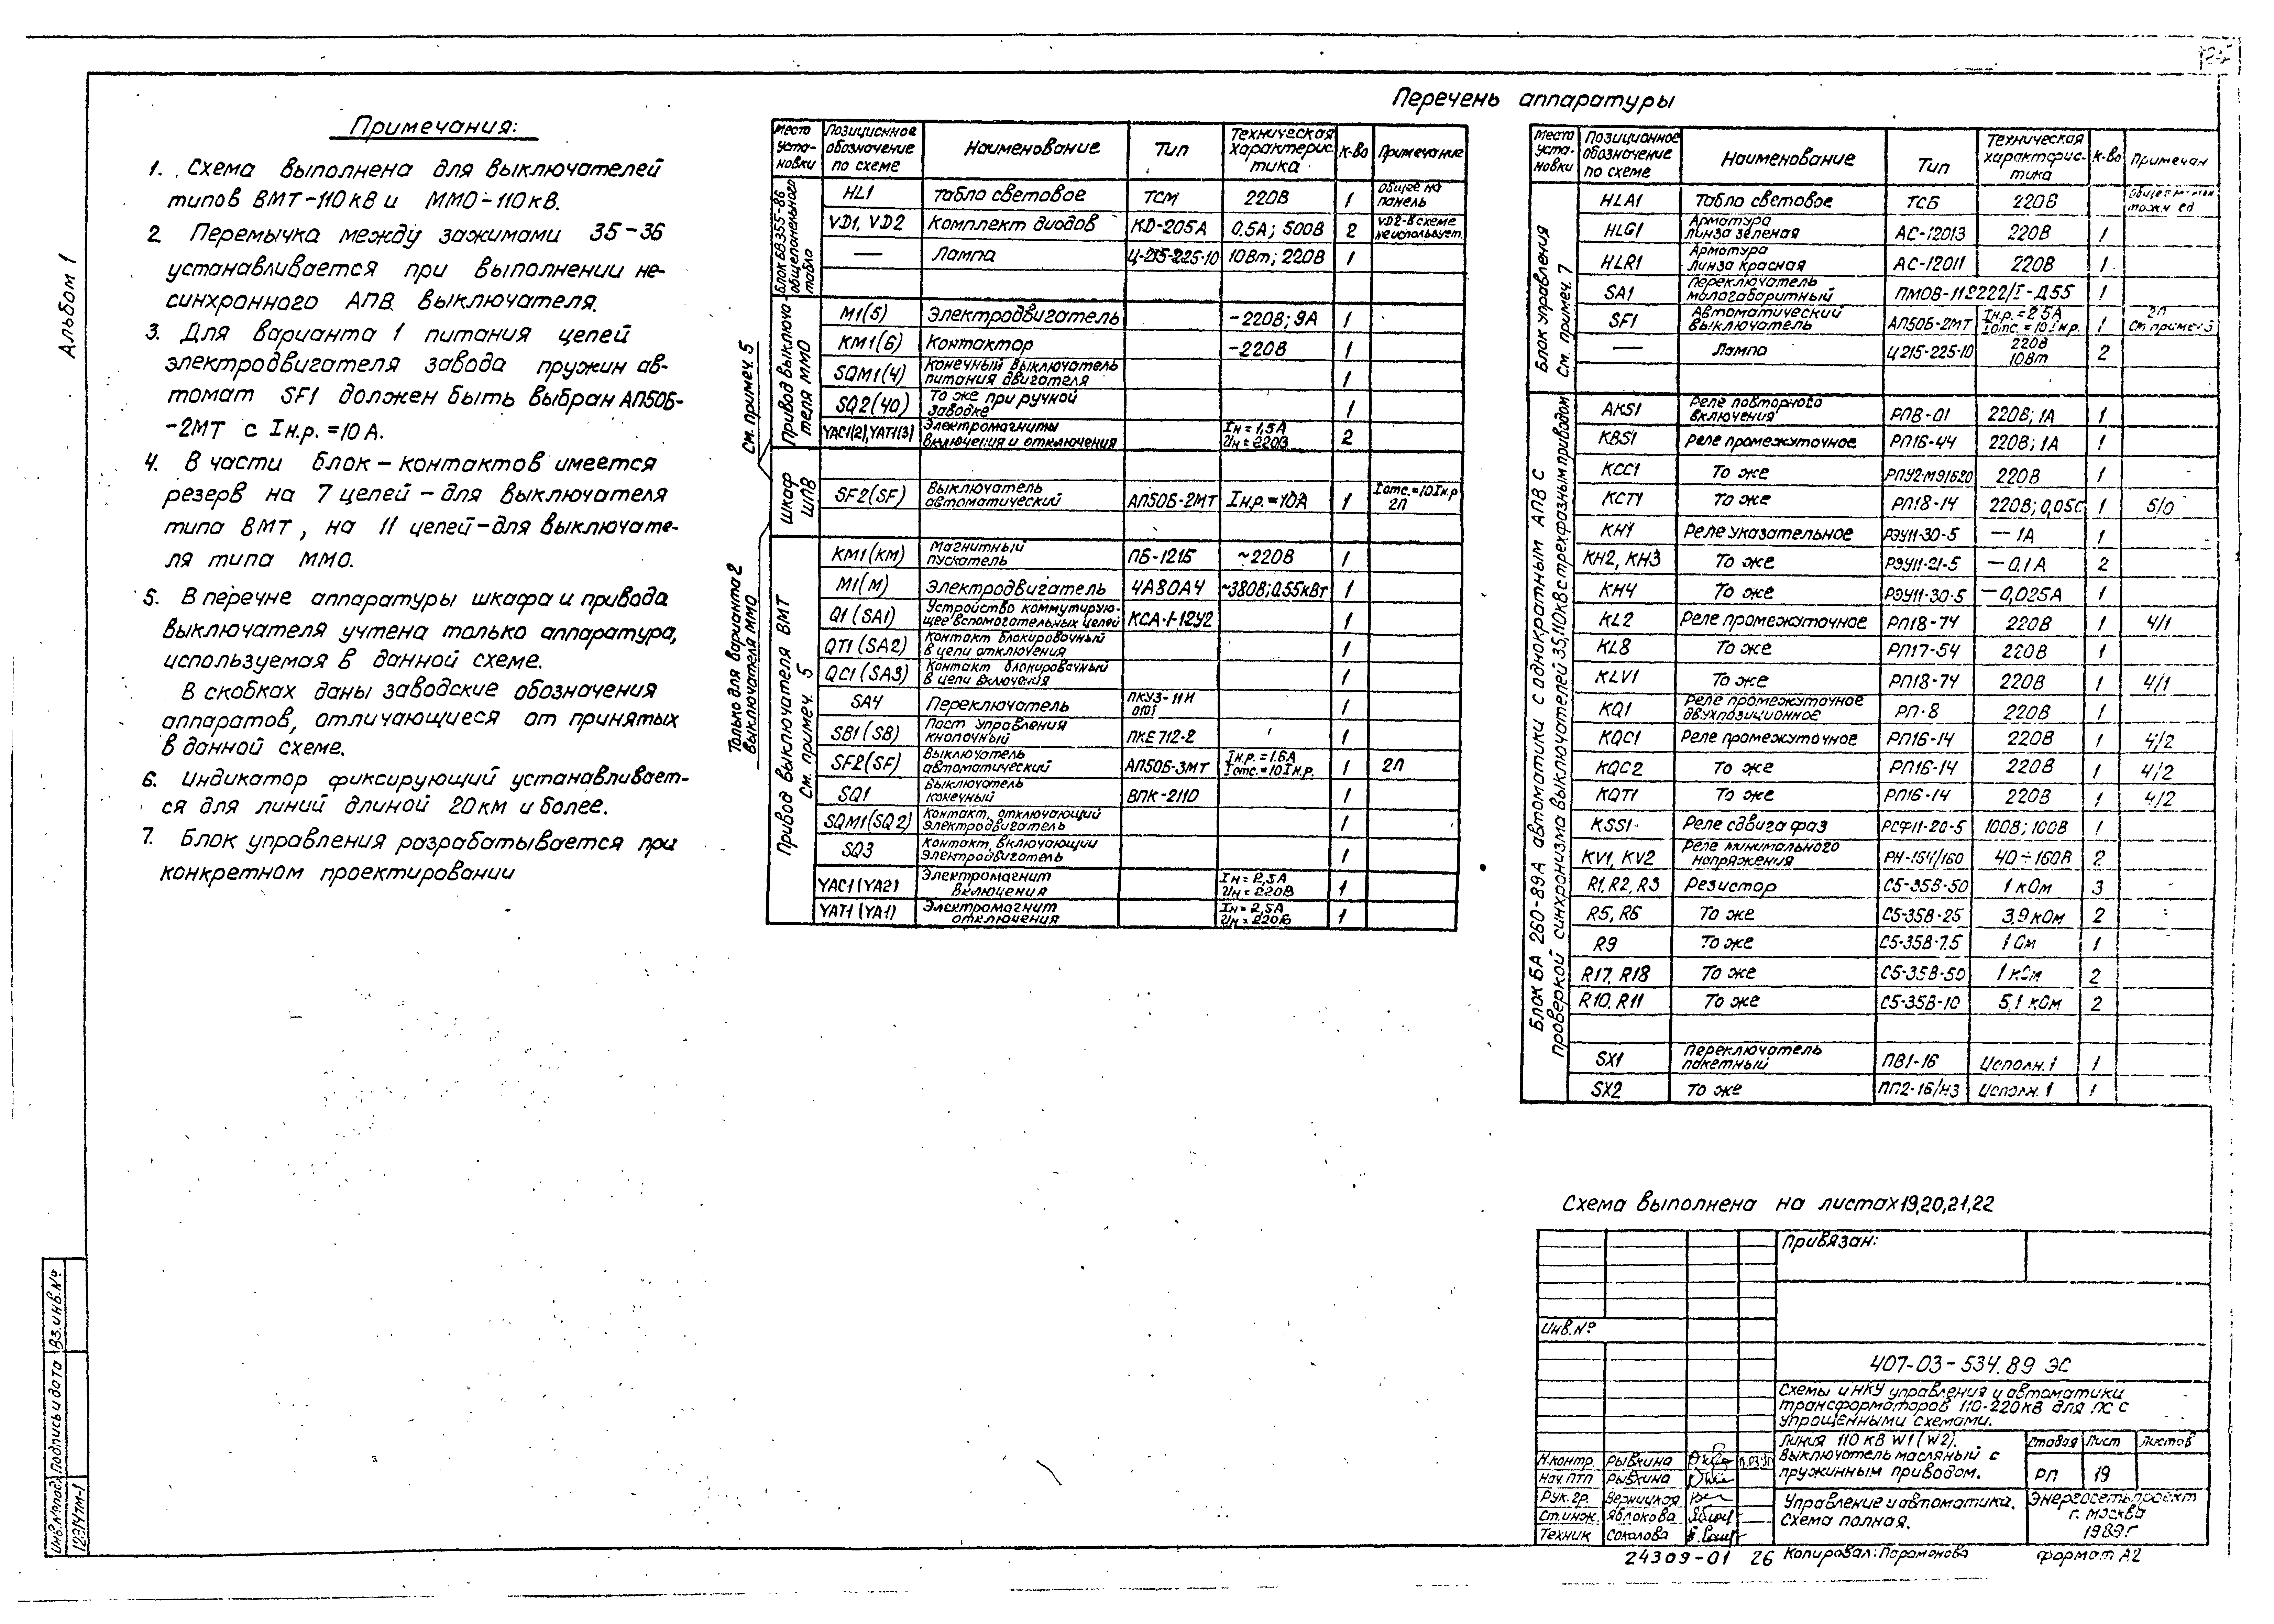 Альбом 1
Примечания:
1. Схема выполнена для выключателей
типов ВМТ-110кВ и ММО-110кВ.
2 Перемычка между зажимами 35-36
устанавливается при выполнении не-
синхронного АПВ выключателя.
3. Для варианта 1 питания цепей
электродвигателя завода пружин ав-
томат SF1 должен быть выбран АП50Б-
-2МТ с Iн.р.=10А.
4. В части блок-контактов имеется
резерв на 7 цепей - для выключателя
типа ВМТ, на 11 цепей-для выключате-
ля типа ММО.
5. В перечне аппаратуры шкафа и привода
выключателя учтена только аппаратура,
используемая в данной схеме.
В скобках даны заводские обозначения
аппаратов, отличающиеся от принятых
в данной схеме.
6. Индикатор фиксирующий устанавливает-
ся для линий длиной 20км и более.
7. Блок управления разрабатывается при
конкретном проектировании
Перечень аппаратуры
Место уста-новки Позиционное обозначение по схеме Наименование Тип Техническая характерис-тика К-во Примечание
Блок БВ355-86 общепанельного табло
HL1 Табло световое ТСМ 220В 1 Общее на панель
VD1, VD2 Комплект диодов КD-205А 0.5А; 500В 2 VD2-в схеме не использует.
— Лампа Ц-215-225-10 10Вт; 220В 1
Привод выключа-теля ММО
См. примеч. 5
М1(5) Электродвигатель -220В; 9А 1
КМ1(6) Контактор -220В 1
SQM1(4) Конечный выключатель питания двигателя 1
SQ2(40) То же при ручной заводке 1
YAC1(2), YAT1(3) Электромагниты включения и отключения Iн=1,5А Uн=220В 2
Шкаф ШПВ
SF2(SF) Выключатель автоматический АП50Б-2МТ Iн.р.=10А 1 Iотс.=10Iн.р 2П
Только для варианта 2
выключателя ММО
Привод выключателя ВМТ
См. примеч. 5
КМ1(КМ) Магнитный пускатель ПБ-121Б ~220В 1
М1(М) Электродвигатель 4А80А4 ~380В;0.55кВт 1
Q1(SA1) Устройство коммутирую-щее вспомогательных цепей КСА-1-12У2 1
QT1(SA2) Контакт блокировочный в цепи отключения 1
QC1(SA3) Контакт блокировочный в цепи включения 1
SA4 Переключатель ПКУ3-11И 0101 1
SB1(SB) Пост управления кнопочный ПКЕ712-2 1
SF2(SF) Выключатель автоматический АП50Б-3МТ Iн.р.=1.6А Iотс.=10Iн.р. 1 2П
SQ1 Выключатель конечный ВПК-2110 1
SQM1(SQ2) Контакт, отключающий электродвигатель 1
SQ3 Контакт, включающий электродвигатель 1
YAC1(YA2) Электромагнит включения Iн=2,5А Uн=220В 1
YAT1(YA1) Электромагнит отключения Iн=2,5А Uн=220В 1
Место уста-новки Позиционное обозначение по схеме Наименование Тип Техническая характерис-тика К-во Примечан
Блок управления
См. примеч. 7
HLA1 Табло световое ТСБ 220В
HLG1 Арматура линза зеленая АС-12013 220В 1
HLR1 Арматура линза красная АС-12011 220В 1
SA1 Переключатель малогабаритный ПМОВ-112222/I-Д55 1
SF1 Автоматический выключатель АП50Б-2МТ Iн.р.=2.5А Iотс.=10Iн.р. 1 2П См примеч 3
— Лампа Ц215-225-10 220В 10Вт 2
Блок БА 260-89А автоматики с однократным АПВ с
проверкой синхронизма выключателей 35,110кВ с трехфазным приводом
AKS1 Реле повторного включения РПВ-01 220В; 1А 1
KBS1 Реле промежуточное РП16-44 220В; 1А 1
KCC1 То же РПУ2-М91620 220В 1
KCT1 То же РП18-14 220В; 0,05С 1 5/0
KH1 Реле указательное РЭУ11-30-5 —1А 1
KH2, KH3 То же РЭУ11-21-5 —0.1А 2
KH4 То же РЭУ11-30-5 —0,025А 1
KL2 Реле промежуточное РП18-74 220В 1 4/1
KL8 То же РП17-54 220В 1
KLV1 То же РП18-74 220В 1 4/1
KQ1 Реле промежуточное двухпозиционное РП-8 220В 1
KQC1 Реле промежуточное РП16-14 220В 1 4/2
KQC2 То же РП16-14 220В 1 4/2
KQT1 То же РП16-14 220В 1 4/2
KSS1 Реле сдвига фаз РСФ11-20-5 100В; 100В 1
KV1, KV2 Реле минимального напряжения РН-154/160 40÷160В 2
R1, R2, R3 Резистор С5-35В-50 1 кОм 3
R5, R6 То же С5-35В-25 3.9 кОм 2
R9 То же С5-35В-7.5 1 Ом 1
R17, R18 То же С5-35В-50 1 кОм 2
R10, R11 То же С5-35В-10 5,1 кОм 2
SX1 Переключатель пакетный ПВ1-16 Исполн.1 1
SX2 То же ПП2-16/н3 Исполн.1 1
Схема выполнена на листах 19,20,21,22
Привязан:
Инв.№
407-03-534.89 ЭС
Схемы и НКУ управления и автоматики
трансформаторов 110-220кВ для ПС с
упрощенными схемами.
Линия 110 кВ W1(W2).
Выключатель масляный с
пружинным приводом.
Стадия Лист Листов
РП 19
Управление и автоматика.
Схема полная.
Энергосетьпроект
г. Москва
1989г
Н.контр. Рывкина
Нач.ПТП Рывкина
Рук.гр. Верницкая
Ст.инж. Яблокова
Техник Соколова
24309-01 26 Копировал: Парамонова формат А2
Инв.№подл. Подпись и дата Вз.инв.№
12314тм-1